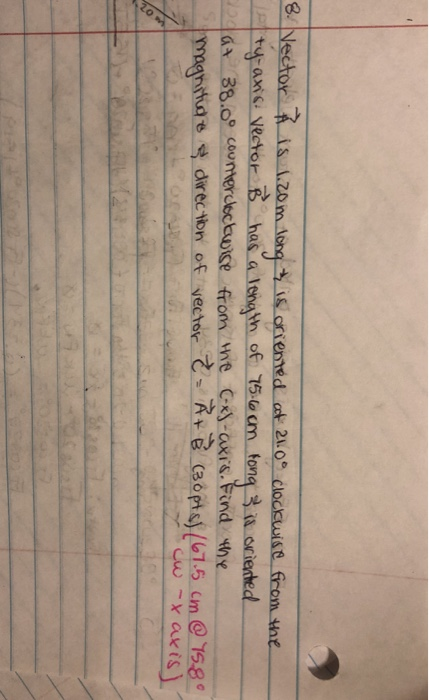 8. Vector A⃗ is 1.20m long & is oriented at 21.0° clockwise from the
+y-axis. Vector B⃗ has a length of 75.6cm long & is oriented
at 38.0° counterclockwise from the (-x)-axis. Find the
magnitude & direction of vector C⃗ = A⃗ + B⃗ (30pts) (67.5 cm @ 75.8°
cw -x axis)
1.20m